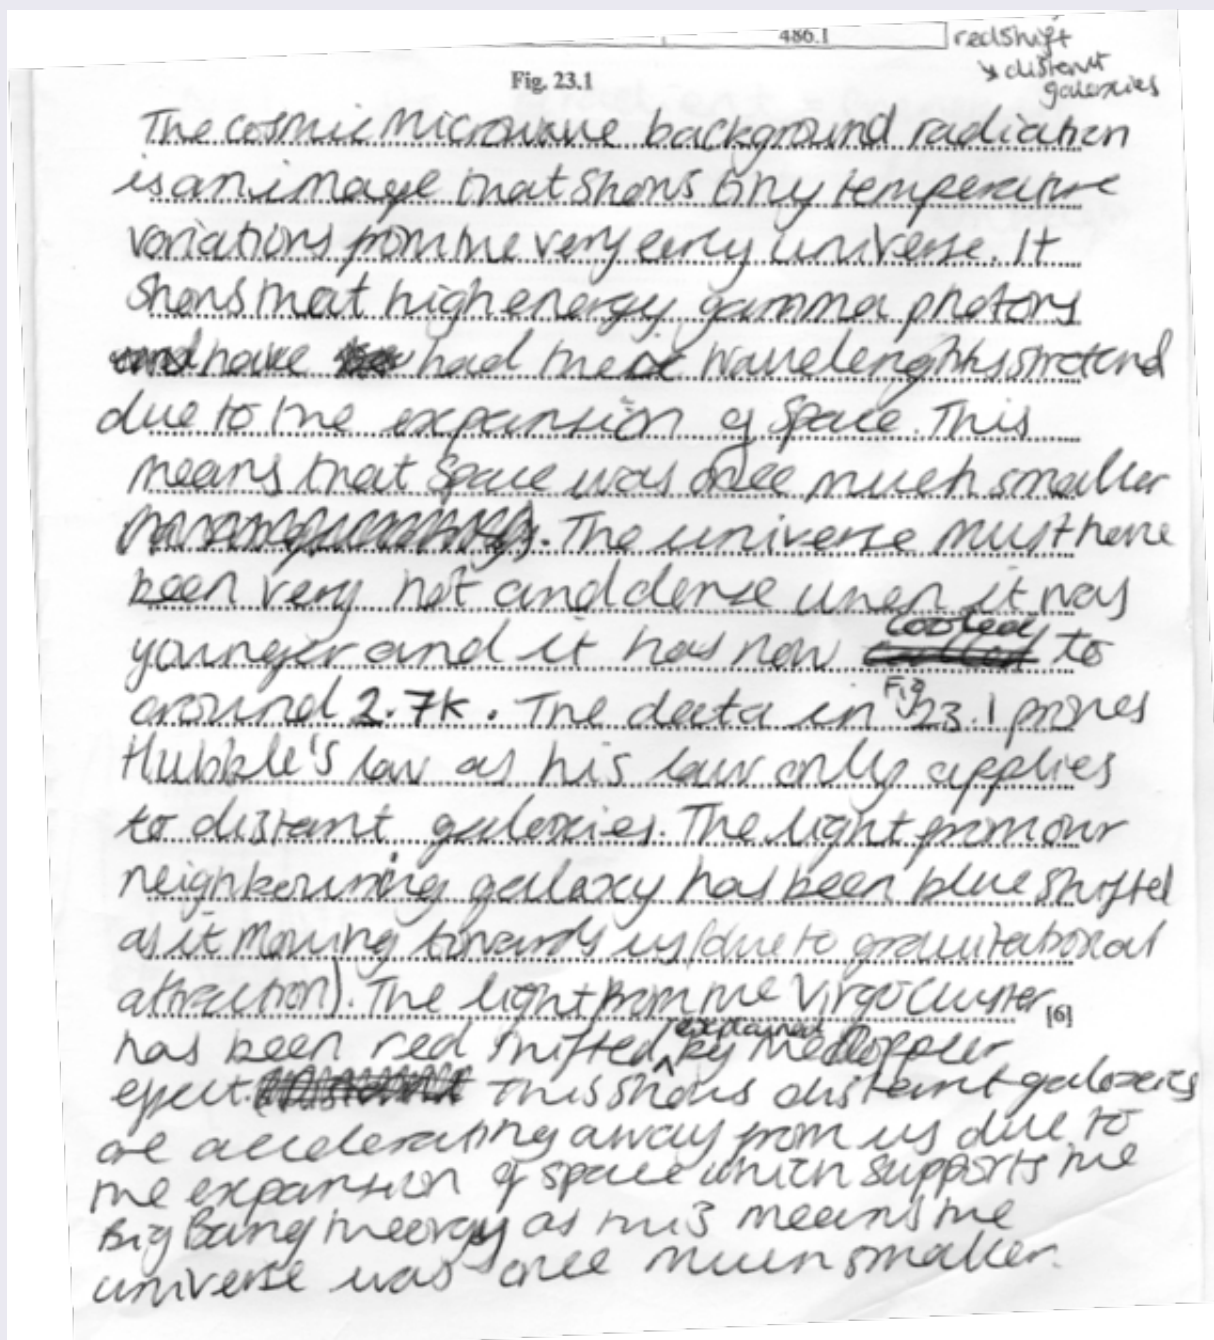 486.1
redshift
↘ distant
galaxies
Fig. 23.1
The cosmic microwave background radiation
is an image that shows tiny temperature
variations from the very early universe. It
shows that high energy gamma photons
have had the wavelenghts stretched
due to the expansion of space. This
means that space was once much smaller
. The universe must have
been very hot and dense when it was
younger and it has now cooled to
around 2.7K. The data in Fig 23.1 proves
Hubble's law as his law only applies
to distant galaxies. The light from our
neighbouring galaxy has been blue shifted
as it moving towards us (due to gravitational
attraction). The light from the Virgo Cluster
[6]
has been red shifted, explained by the Doppler
effect. This shows distant galaxies
are accelerating away from us due to
the expansion of space which supports the
Big Bang theory as this means the
universe was once much smaller.